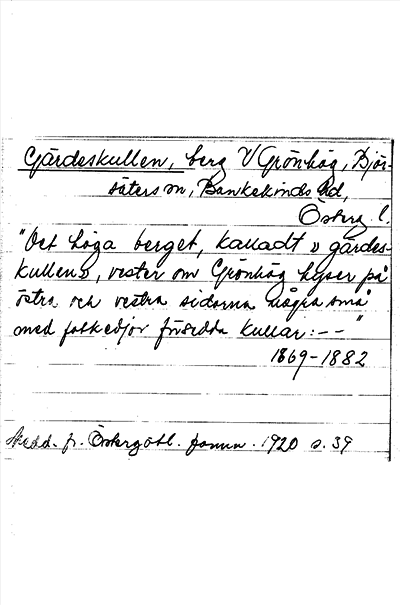 Gärdeskullen, berg V Grönhög, Björ-
säters sn, Bankekinds hd,
Österg. l.
"Det höga berget, kalladt » gärdes-
kullen», vester om Grönhög hyser på
östra och vestra sidorna några små
med fotkedjor försedda kullar: -- "
1869-1882
Medd. fr. Östergötl. fornm. 1920 s. 39